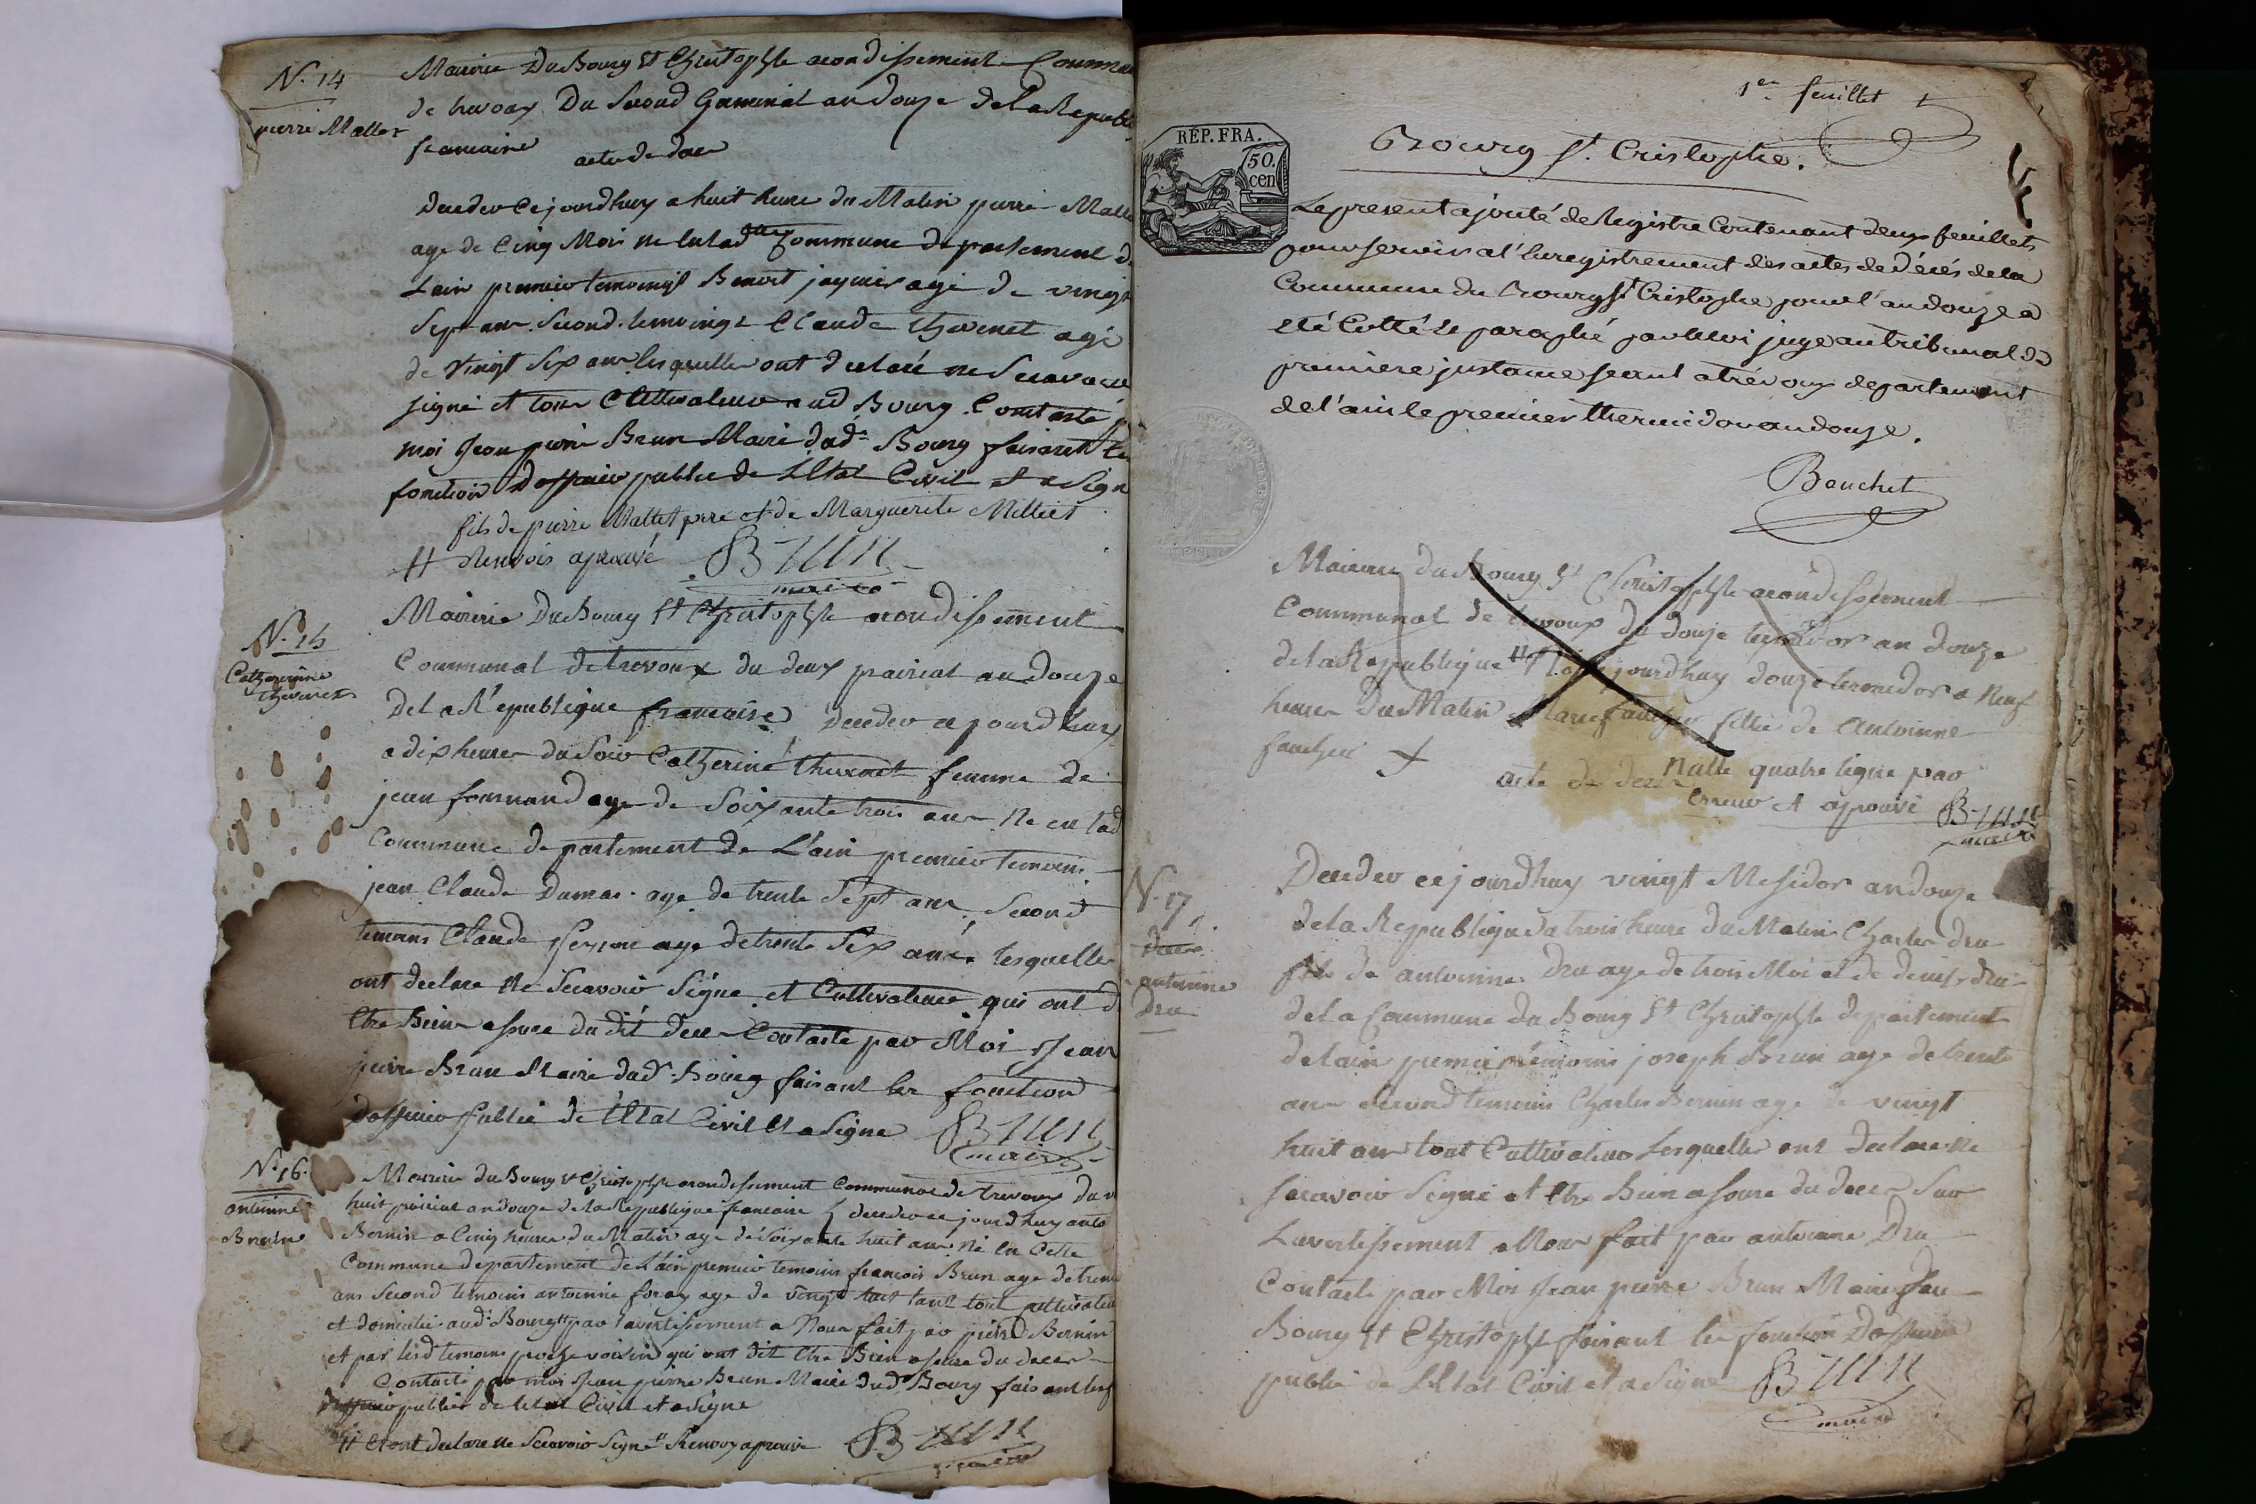 N. 14
pierre Mallet
Mairie Du Bourg St Christophle arondissement Commun
de trevoux Du Second Germinal an douze de La Republi
francaise acte de dece
Decedee Cejourdhuy a huit heure du Matin pierre Malle
age de Cinq Mois ne en lad Commune departement d
Lain premier temoingt Benoit age de vingt
Sept ans Second temoingt Claude thevenet agé
de vingt Six ans lesquelles ont declaré ne Scavoir
signé et tous Cultivateur aud Bourg Constaté p
moi Jean pierre Brun Maire dud Bourg faisant le
fonction dofficier public de LEtat Civil et a Signe
fils de pierre Mallet pere et de Marguerite Milliet
H Renvois aprouvé BRUN
maire
N. 15
Catherinne
thevenet
Mairie Du Bourg St Christophle arondissement
Communal de trevoux du deux prairial an douze
De La République francaise Decedee ce jourdhuy
a dix heures du Soir Catherine thevenet femme de
jean fornand age de Soixante trois ans Ne en lad
Commune departement de L'ain premier temoin
jean Claude Dumas age de trente Sept ans Second
temoins Claude age de trente Six ans lesquelles
ont declare ne Scavoir Signe et Cultivateur qui ont d
Etre Bien assure du dit dece Contaste par Moi Jean
pierre Brun Maire dud Bourg faisant les fonction
dofficier Public de l'Etat Civil et a Signe BRUN
maire
N. 16.
antoinne
Bernin
Mairie du Bourg St Christophle arondissement Communal de trevoux Du
huit prairial an douze de La Republique francaise decedee ce jourdhuy anto
Bernin a Cinq heures du Matin age de Soixante huit ans Né en Cette
Commune departement de L'ain premier temoin francois Brun age de trente
ans Second temoins antoinne foray age de vingt huit tous cultivateur
et domicilié aud Bourg H par l'avertissement a Nous fait par pierre Bernin
et par lesd temoins proche voisin qui ont dit Etre Bien assure du deces
Contasté par moi Jean pierre Brun Maire dud Bourg faisant les f
dofficier public de lEtat Civil et a Signe
H et ont declare ne Scavoir Signe H Renvoy aprouve BRUN
maire
1er feuillet
RÉP. FRA.
50.
cen
Bourg St. Cristophe.
Le present ajouté de Registre Contenant deux feuillets
pour servir a l'Enregistrement des actes de décés de la
Commune du Bourg St Cristophe pour l'an douze a
eté Cotté et paraphé par moi juge au tribunal de
premiere jnstance seant a trévoux departement
de l'ain le premier thermidor an douze.
Bouchet
Mairie du Bourg St Christophle arondissement
Communal de trevoux du douze termidor an douze
de la Republique H jourdhuy douze termidor a Neuf
heures Du Matin Marie fille de antoinne
acte de dece Nulle quatre ligne par
Erreur et aprouvé BRUN
maire
N. 17
dece
antoinne
Dru
Decedee cejourdhuy vingt Mesidor an douze
de la Republique a trois heure du Matin Charles dru
fils de antoinne Dru age de trois Moi et de denise dru
de La Commune du Bourg St Christophle departement
de lain premier temoins joseph Brun age de trente
ans Second temoin Charles Bernin age de vingt
huit ans tous Cultivateur Lesquelles ont declare ne
Scavoir Signe et Etre Bien assure du deces Sur
Lavertissement a Nous fait par antoinne Dru
Contaste par Moi Jean pierre Brun Maire du
Bourg St Christophle faisant les fonction Dofficier
public de LEtat Civil et a Signe BRUN
maire